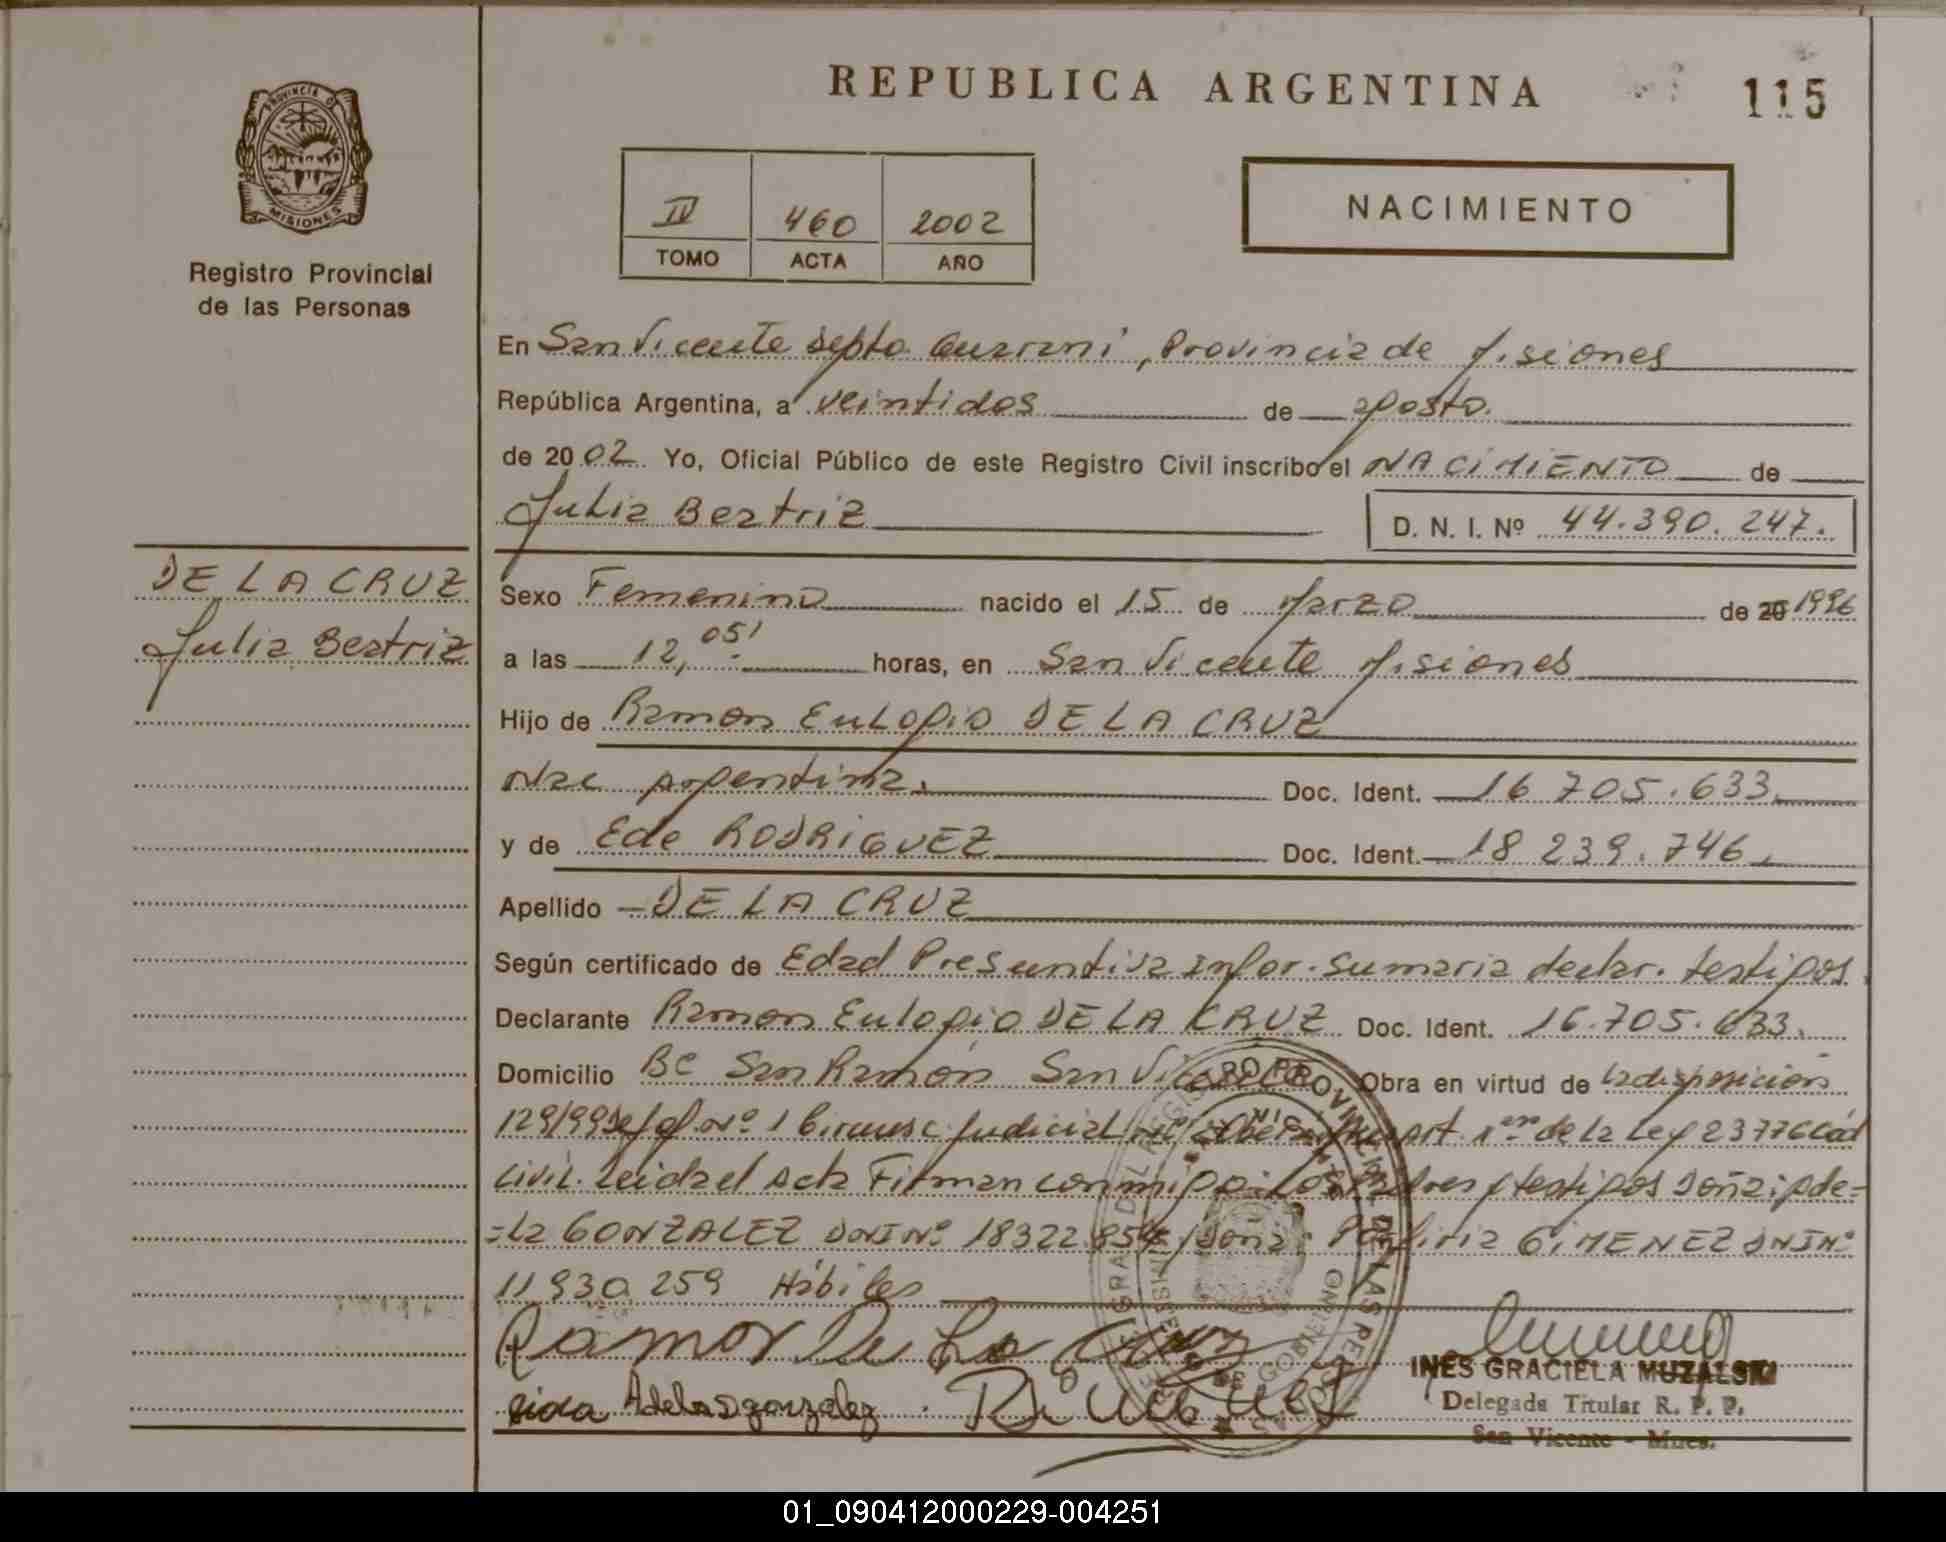 REPUBLICA ARGENTINA
115
PROVINCIA D
MISIONES
Registro Provincial
de las Personas
IV 460 2002
TOMO ACTA AÑO
NACIMIENTO
En San Vicente Depto Guarani, Provincia de Misiones
República Argentina, a veintidos de agosto.
de 2002 Yo, Oficial Público de este Registro Civil inscribo el NACIMIENTO de
Julia Beatriz
D. N. I. Nº 44.390.247.
DE LA CRUZ
Julia Beatriz
Sexo Femenino nacido el 15 de Marzo de 20 1996
a las 12,05' horas, en San Vicente Misiones
Hijo de Ramon Eulogio DE LA CRUZ
Nac Argentina. Doc. Ident. 16 705.633.
y de Ede RODRIGUEZ Doc. Ident. 18 239.746.
Apellido DE LA CRUZ
Según certificado de Edad Presuntiva infor. sumaria declar. testigos.
Declarante Ramon Eulogio DE LA CRUZ Doc. Ident. 16.705.633.
Domicilio Bº San Ramón San Vicente Obra en virtud de la disposicion
129/99 Nº 1 Circunsc. Judicial art. 1º de la Ley 23776 Cod
civil. Leida el Acta Firman conmigo los Padres y testigos Doña: Ade=
=la GONZALEZ DNI Nº 18322.854 y Doña: Porfiria GIMENEZ DNI Nº
11930.259 Hábiles
Ramon De La Cruz
Adela D gonzalez
INES GRACIELA MUZALSKI
Delegada Titular R. P. P.
San Vicente - Mnes.
01_090412000229-004251